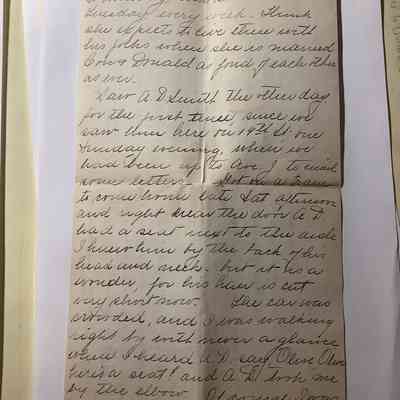 Tuesday every week. Think
she expects to live there with
his folks when she is married
Cora & Donald as fond of each other
as ever.
Saw A D Smith the other day
for the first time since we
saw him here on 19th St. one
Sunday evening, when we
had been up to Ave J to mail
some letters. Got on a train
to come home late Sat afternoon
and right near the door A D
had a seat next to the aisle
I knew him by the back of his
head and neck. but it is a
wonder, for his hair is cut
very short now. The car was
crowded, and I was walking
right by with never a glance
when I heard A.D. say Olive Olive
here's a seat! and A.D. took me
by the elbow. Of course I was